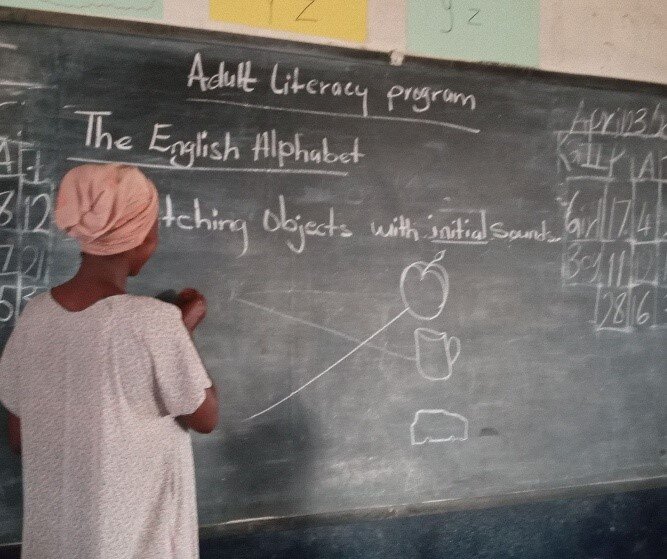 Y Z
y z
Adult Literacy program
The English Alphabet
tching objects with initial sounds
April 13/2
Girl 17 4
Boy 11 2
28 6
8 12
7 21
5